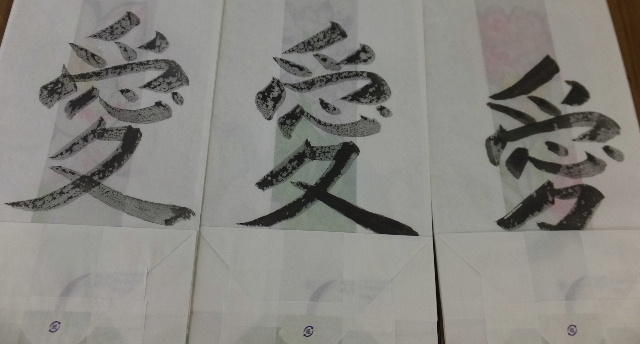 愛 愛 愛